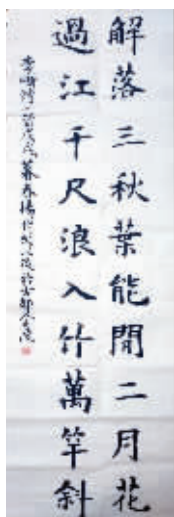 解落三秋葉能開二月花
過江千尺浪入竹萬竿斜
李嶠詩
暮春楊